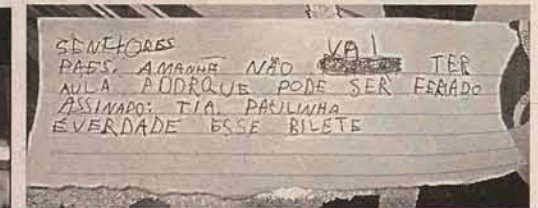 SENHORES
PAES, AMANHÃ NÃO VAI TER
AULA PODRQUE PODE SER FERIADO
ASSINADO: TIA PAULINHA
ÉVERDADE ESSE BILETE